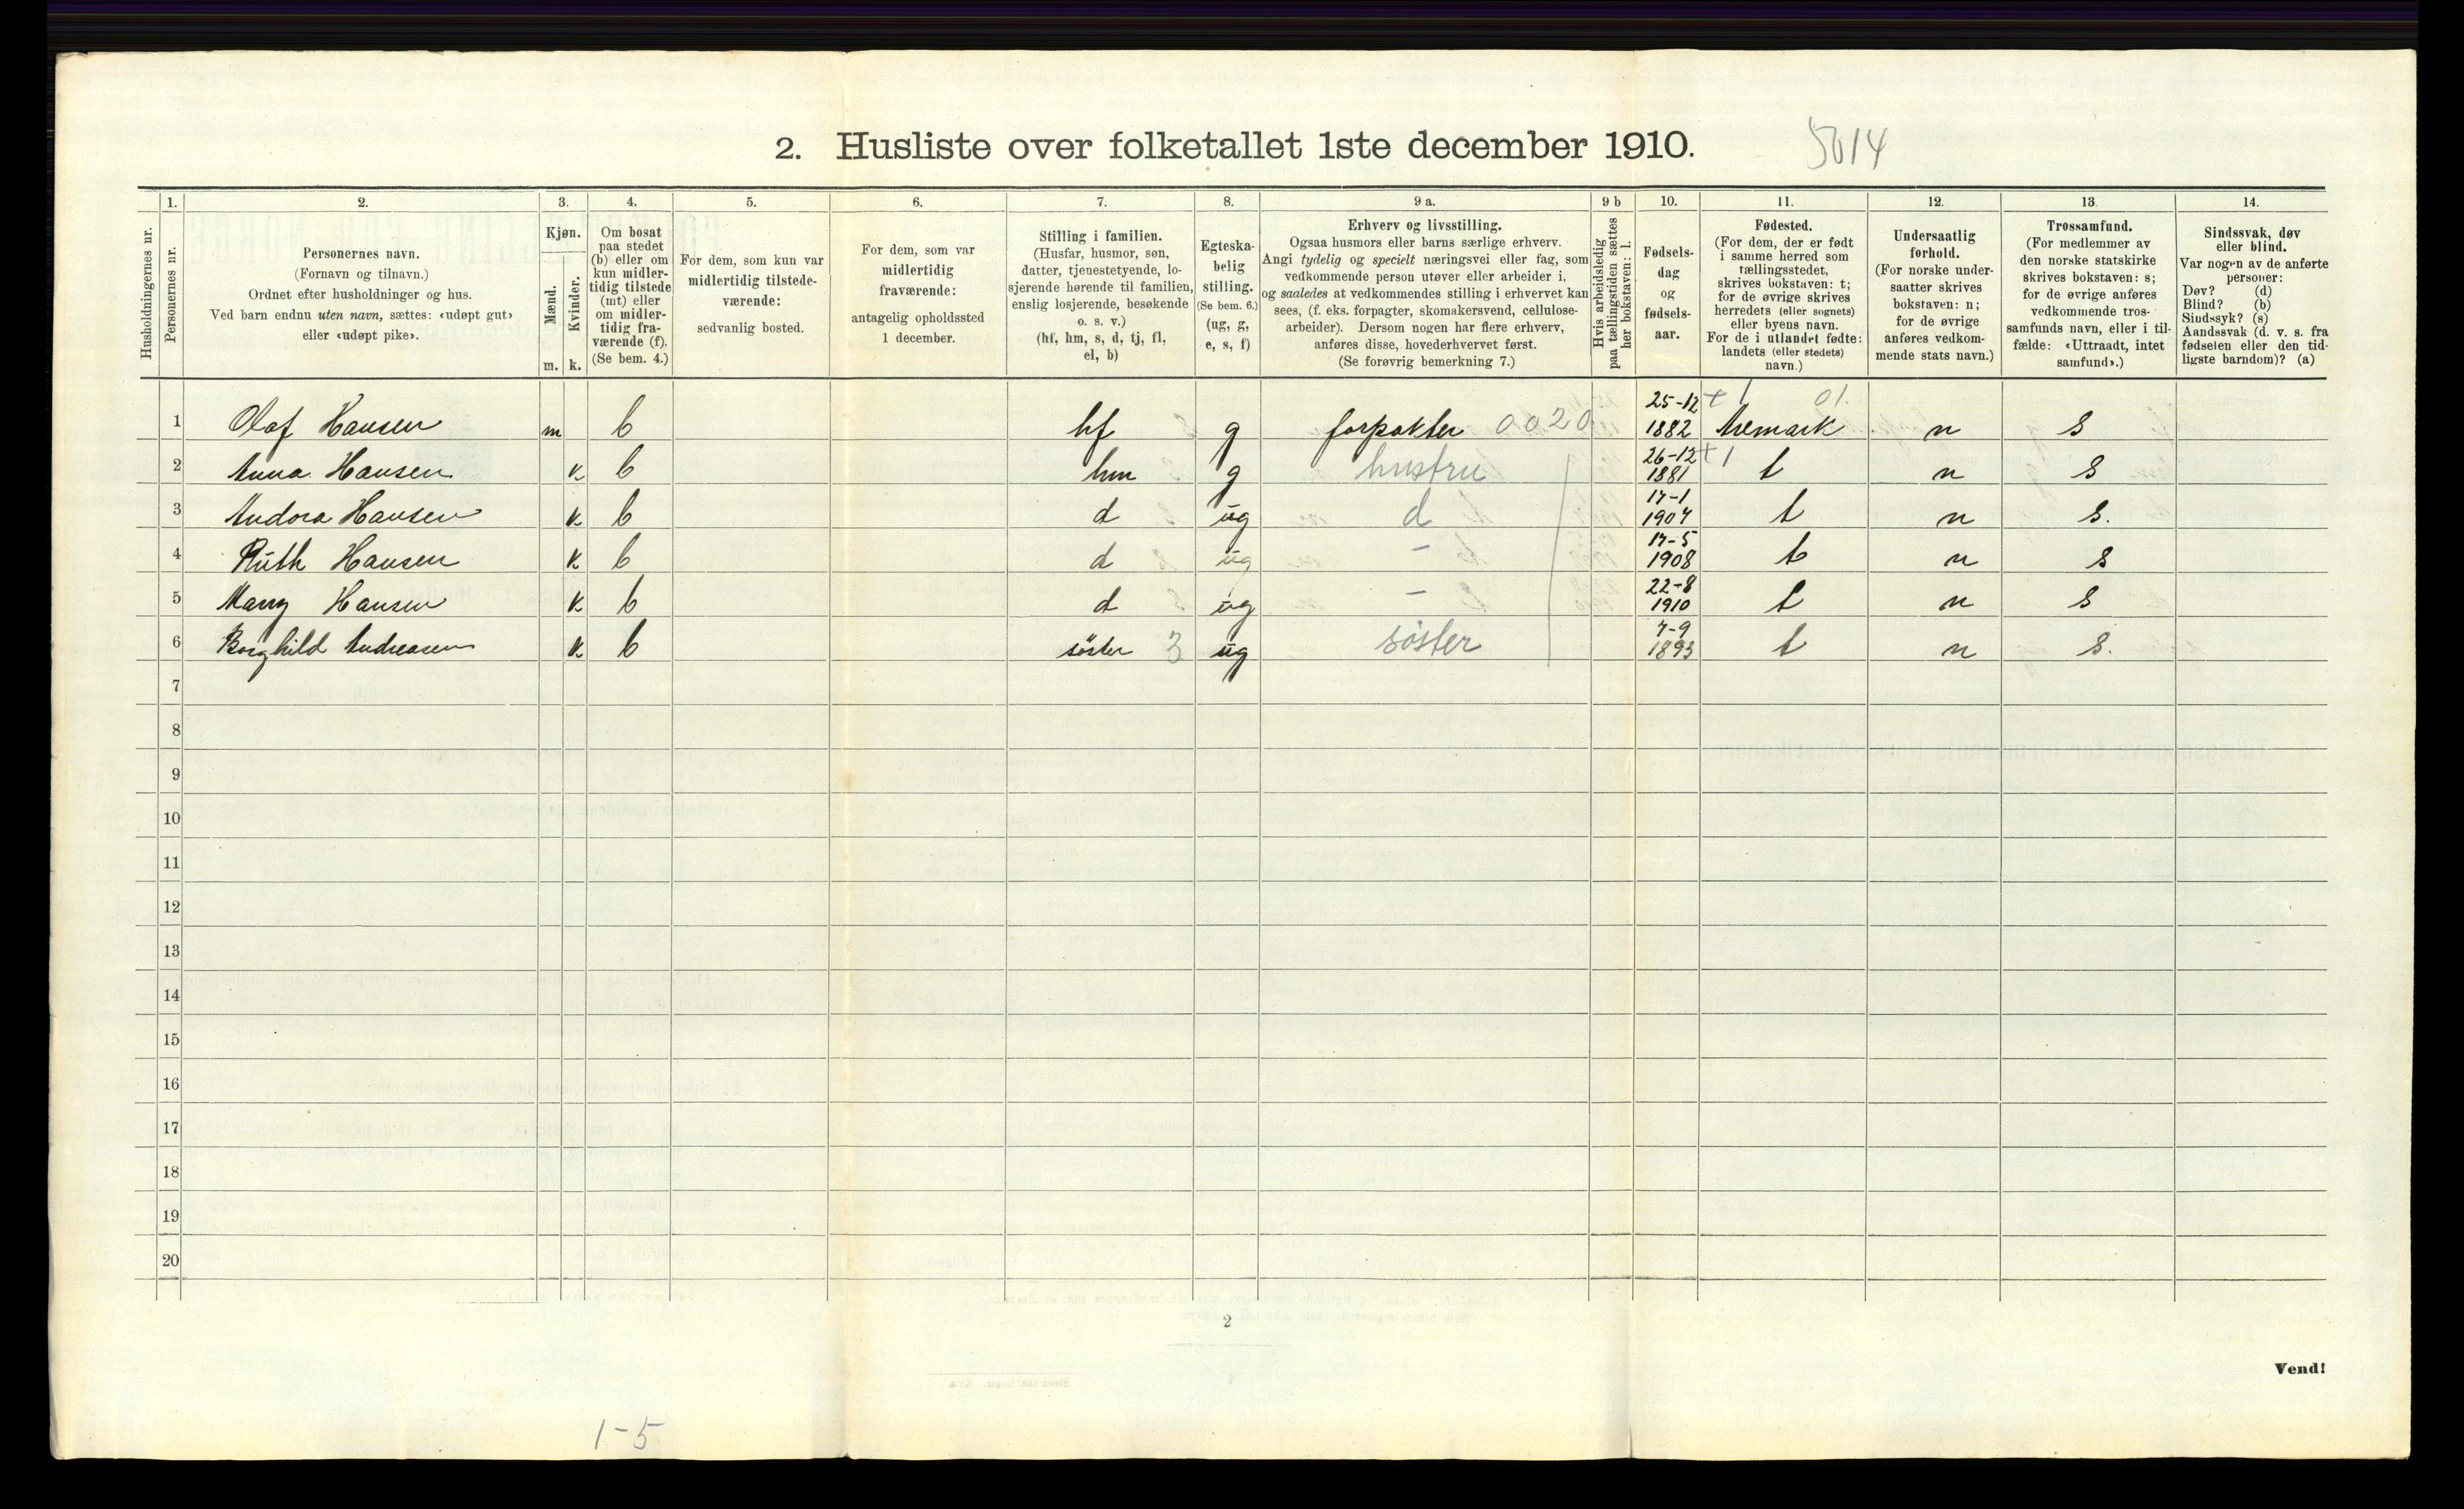 2. Husliste over folketallet 1ste december 1910.
5014
Husholdningernes nr.
1.
Personernes nr.
2.
Personernes navn.
(Fornavn og tilnavn.)
Ordnet efter husholdninger og hus.
Ved barn endnu uten navn, sættes: «udøpt gut»
eller «udøpt pike».
3.
Kjøn.
Mænd.
Kvinder.
m. k.
4.
Om bosat
paa stedet
(b) eller om
kun midler-
tidig tilstede
(mt) eller
om midler-
tidig fra-
værende (f).
(Se bem. 4.)
5.
For dem, som kun var
midlertidig tilstede-
værende:
sedvanlig bosted.
6.
For dem, som var
midlertidig
fraværende:
antagelig opholdssted
1 december.
7.
Stilling i familien.
(Husfar, husmor, søn,
datter, tjenestetyende, lo-
sjerende hørende til familien,
enslig losjerende, besøkende
o. s. v.)
(hf, hm, s, d, tj, fl,
el, b)
8.
Egteska-
belig
stilling.
(Se bem. 6.)
(ug, g,
e, s, f)
9 a.
Erhverv og livsstilling.
Ogsaa husmors eller barns særlige erhverv.
Angi tydelig og specielt næringsvei eller fag, som
vedkommende person utøver eller arbeider i,
og saaledes at vedkommendes stilling i erhvervet kan
sees, (f. eks. forpagter, skomakersvend, cellulose-
arbeider). Dersom nogen har flere erhverv,
anføres disse, hovederhvervet først.
(Se forøvrig bemerkning 7.)
9 b
Hvis arbeidsledig
paa tællingstiden sættes
her bokstaven: l.
10.
Fødsels-
dag
og
fødsels-
aar.
11.
Fødested.
(For dem, der er født
i samme herred som
tællingsstedet,
skrives bokstaven: t;
for de øvrige skrives
herredets (eller sognets)
eller byens navn.
For de i utlandet fødte:
landets (eller stedets)
navn.)
12.
Undersaatlig
forhold.
(For norske under-
saatter skrives
bokstaven: n;
for de øvrige
anføres vedkom-
mende stats navn.)
13.
Trossamfund.
(For medlemmer av
den norske statskirke
skrives bokstaven: s;
for de øvrige anføres
vedkommende tros-
samfunds navn, eller i til-
fælde: «Uttraadt, intet
samfund».)
14.
Sindssvak, døv
eller blind.
Var nogen av de anførte
personer:
Døv? (d)
Blind? (b)
Sindssyk? (s)
Aandssvak (d. v. s. fra
fødselen eller den tid-
ligste barndom)? (a)
1 Olaf Hansen m b hf g forpakter 0020 25-12 1882 t 1 01. Aremark n s
2 Anna Hansen k b hm g hustru 26-12 1881 t 1 t n s
3 Andora Hansen k b d ug d 17-1 1907 t n s.
4 Ruth Hansen k b d ug - 17-5 1908 t n s
5 Marry Hansen k b d ug - 22-8 1910 t n s
6 Borghild Andreasen k b söster 3 ug söster 7-9 1893 t n s.
7
8
9
10
11
12
13
14
15
16
17
18
19
20
2
Vend!
1-5